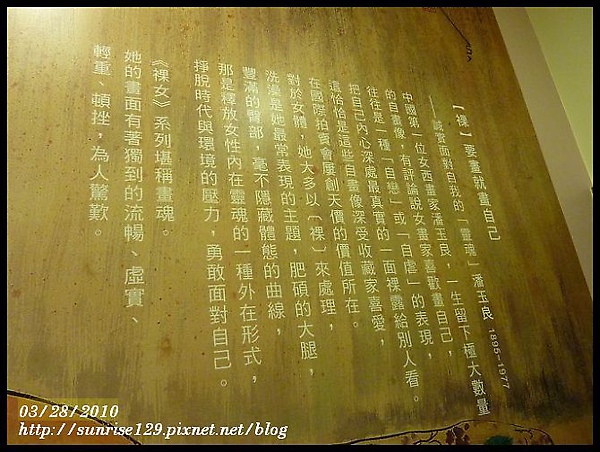 【裸】要畫就畫自己
——誠實面對自我的「靈魂」潘玉良 1895~1977
中國第一位女西畫家潘玉良，一生留下極大數量
的自畫像，有評論說女畫家喜歡畫自己，
往往是一種「自戀」或「自虐」的表現，
把自己內心深處最真實的一面裸露給別人看。
這恰恰是這些自畫像深受收藏家喜愛，
在國際拍賣會屢創天價的價值所在。
對於女體，她大多以〔裸〕來處理，
洗澡是她最常表現的主題，肥碩的大腿，
豐滿的臀部，毫不隱藏體態的曲線，
那是釋放女性內在靈魂的一種外在形式，
掙脫時代與環境的壓力，勇敢面對自己。
《裸女》系列堪稱畫魂。
她的畫面有著獨到的流暢、虛實、
輕重、頓挫，為人驚歎。
03/28/2010
http://sunrise129.pixnet.net/blog